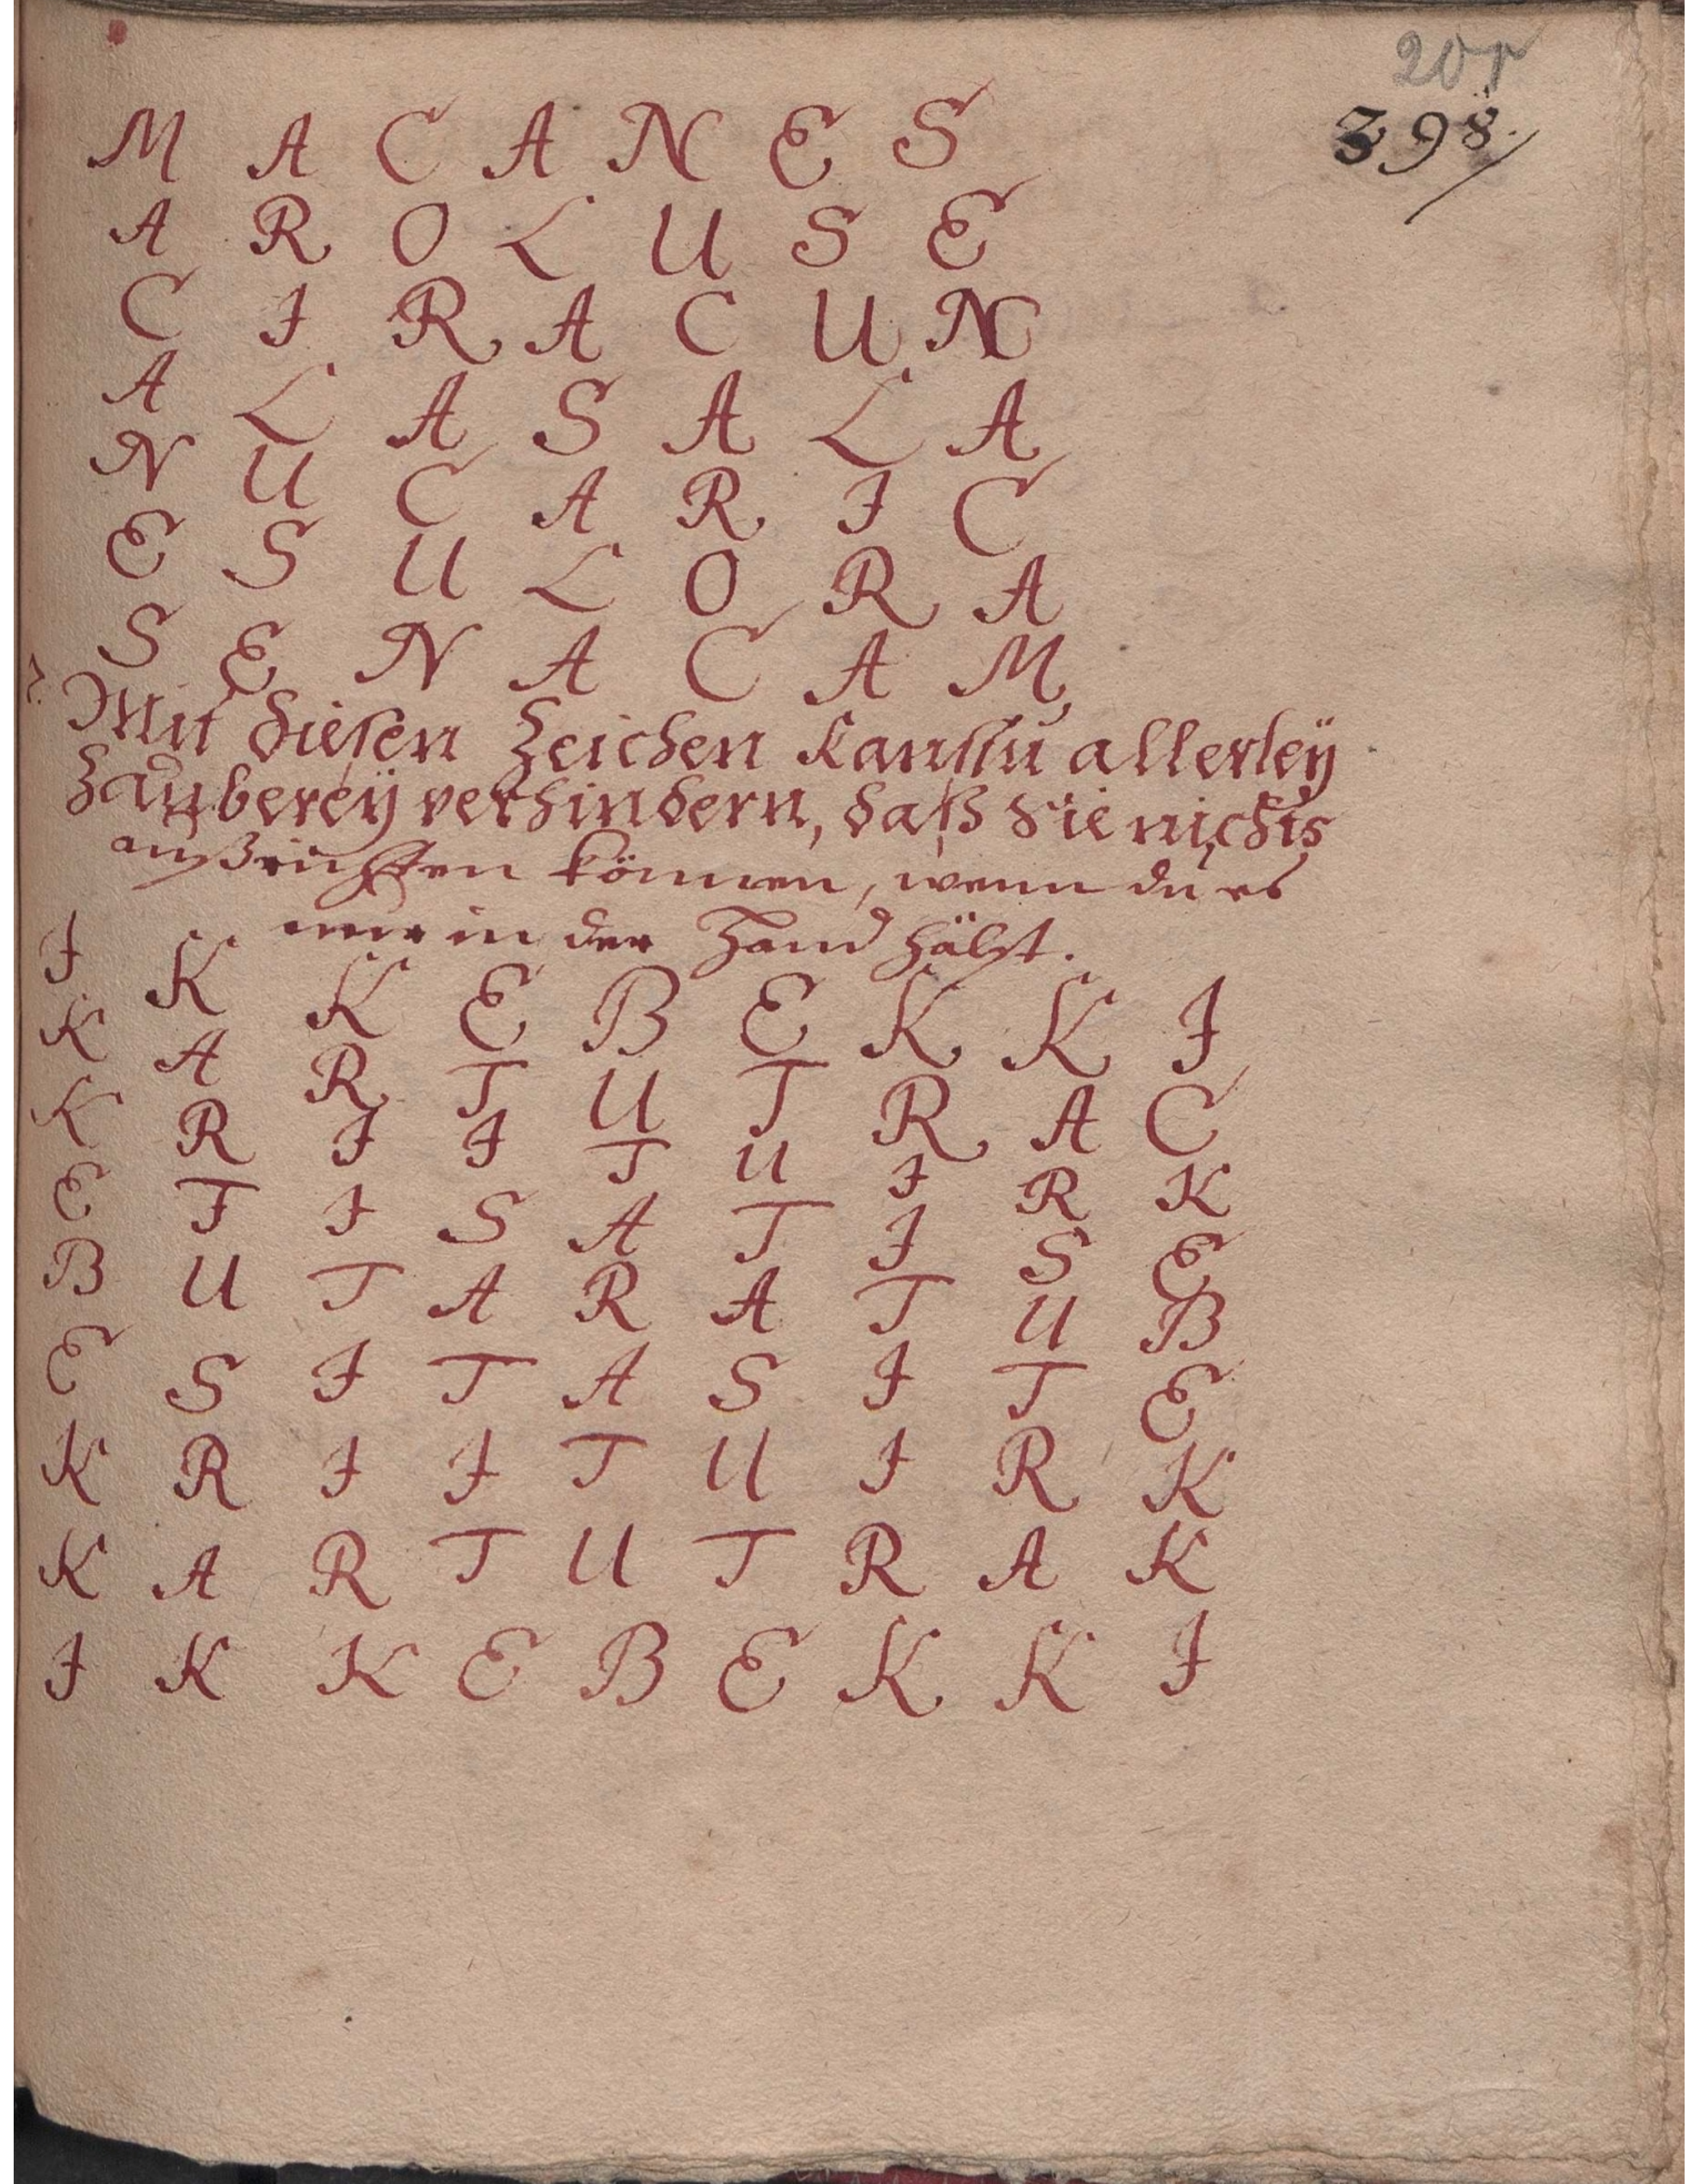 20r
398.
M A C A N E S
A R O L U S E
C I R A C U N
A L A S A L A
N U C A R I C
E S U L O R A
S E N A C A M
2.
Mit diesen Zeichen kanstu allerleÿ
Zaubereÿ verhindern, daß sie nichts
außrichten können, wenn du es
nur in der Hand hälst.
I K K E B E K K I
K A R T U T R A C
K R I I T U I R K
E T I S A T I S E
B U T A R A T U B
E S I T A S I T E
K R I I T U I R K
K A R T U T R A K
I K K E B E K K I